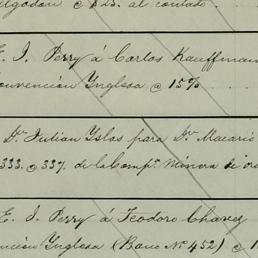 algodon @ $23. al contado.
E. J. Perry á Carlos Kauffman
Convención Ynglesa @ 15%
Dn. Julian Yslas para Dn. Macario
333. @ 337. de la Compa. Minera de
E. J. Perry á Teodoro Chavez
nción Ynglesa (Bono No. 452) @